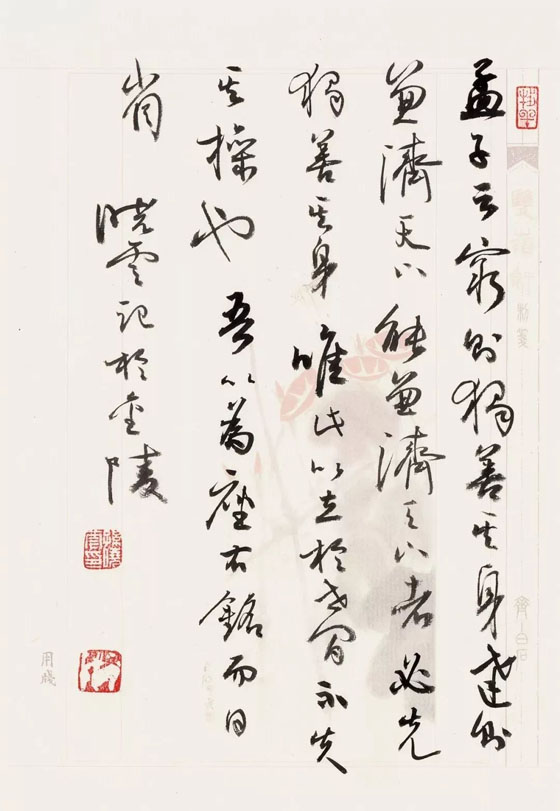 孟子云窮則獨善其身達則
兼濟天下能兼濟天下者必先
獨善其身唯此以立於世間不失
其操也吾以為座右銘而日
省曉雲記於金陵
齊白石
用牋